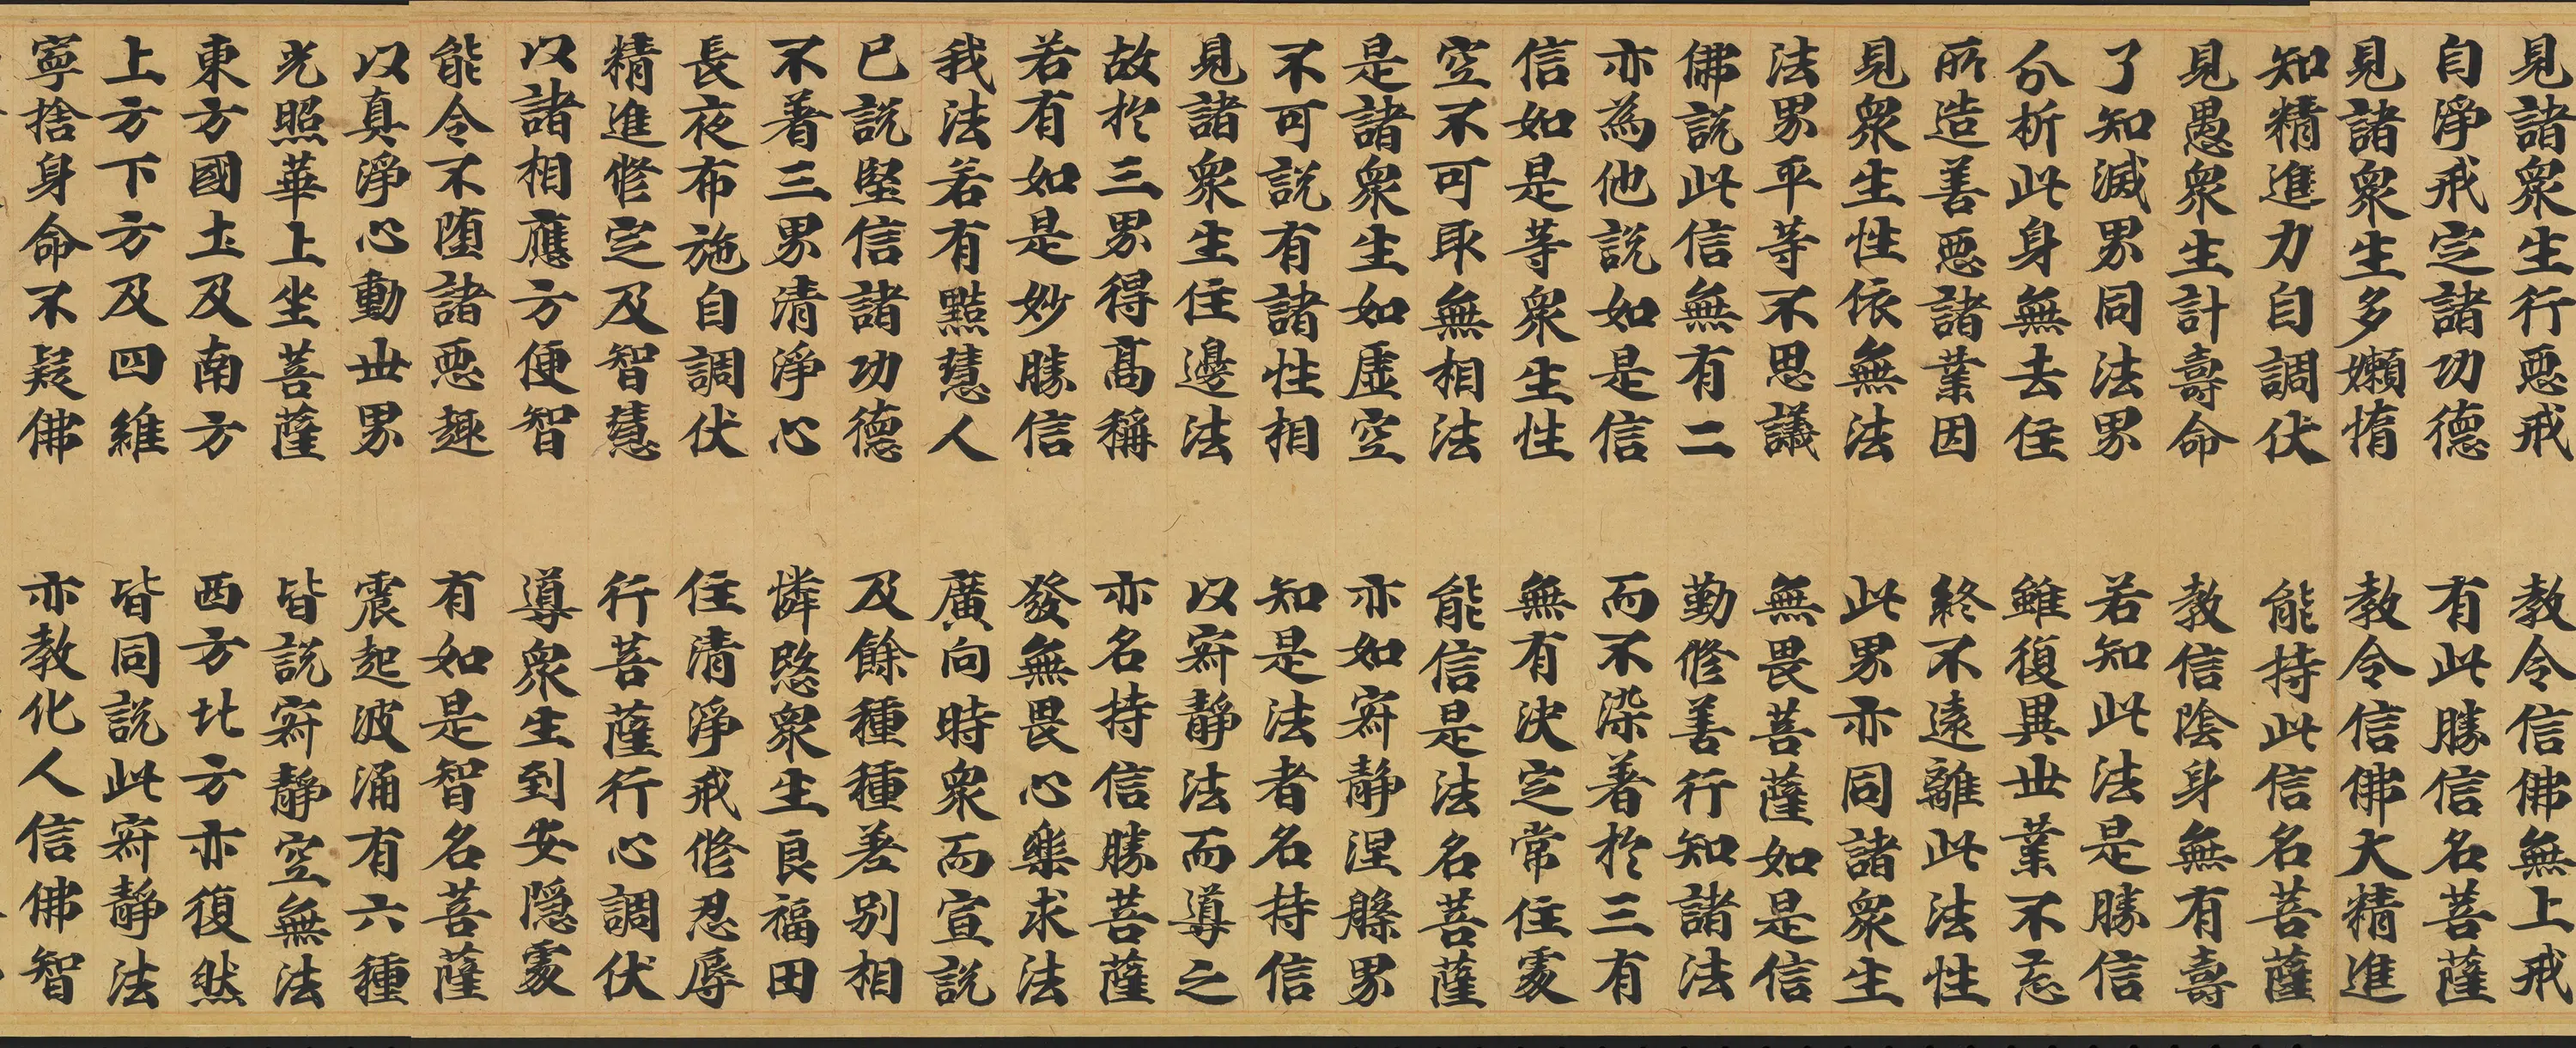 見諸衆生行惡戒　教令信佛無上戒
自淨戒定諸功德　有此勝信名菩薩
見諸衆生多嬾惰　教令信佛大精進
知精進力自調伏　能持此信名菩薩
見愚衆生計壽命　教信陰身無有壽
了知滅界同法界　若知此法是勝信
分析此身無去住　雖復異世業不忘
所造善惡諸業因　終不遠離此法性
見衆生性依無法　此界亦同諸衆生
法界平等不思議　無畏菩薩如是信
佛說此信無有二　勤修善行知諸法
亦為他說如是信　而不染著於三有
信如是等衆生性　無有決定常住處
空不可取無相法　能信是法名菩薩
是諸衆生如虛空　亦如寂靜涅槃界
不可說有諸性相　知是法者名持信
見諸衆生住邊法　以寂靜法而導之
故於三界得高稱　亦名持信勝菩薩
若有如是妙勝信　發無畏心樂求法
我法若有黠慧人　廣向時衆而宣說
已說堅信諸功德　及餘種種差別相
不著三界清淨心　憐愍衆生良福田
長夜布施自調伏　住清淨戒修忍辱
精進修定及智慧　行菩薩行心調伏
以諸相應方便智　導衆生到安隱處
能令不堕諸惡趣　有如是智名菩薩
以真淨心動世界　震起波涌有六種
光照華上坐菩薩　皆說寂靜空無法
東方國土及南方　西方北方亦復然
上方下方及四維　皆同說此寂靜法
寧捨身命不疑佛　亦教化人信佛智